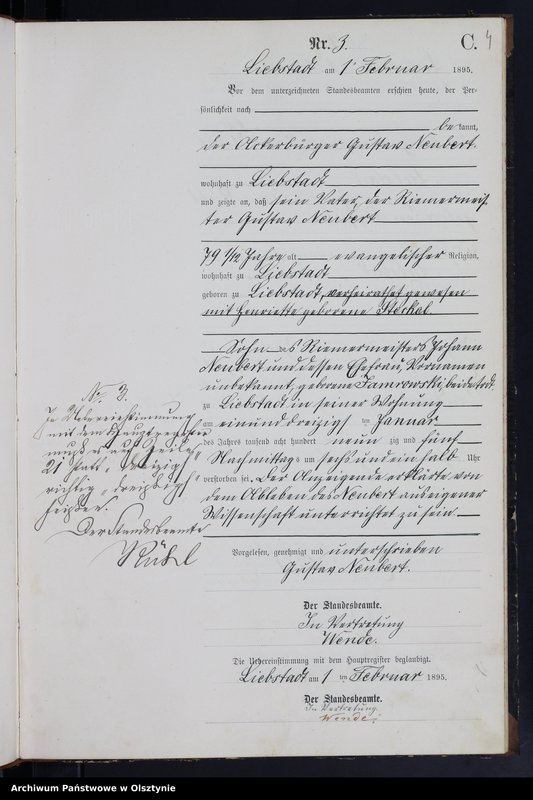 Nr. 3.
C.
4
Liebstadt am 1. Februar 1895.
Vor dem unterzeichneten Standesbeamten erschien heute, der Per-
sönlichkeit nach
bekannt,
der Ackerbürger Gustav Neubert,
wohnhaft zu Liebstadt
und zeigte an, daß sein Vater, der Riemermeis-
ter Gustav Neubert
79 1/12 Jahre alt evangelischer Religion,
wohnhaft zu Liebstadt
geboren zu Liebstadt, verheirathet gewesen
mit Henriette geborene Stöckel
Sohn des Riemermeisters Johann
Neubert und dessen Ehefrau, Vornamen
unbekannt, geborene Jamrowski, beide todt
zu Liebstadt in seiner Wohnung
am einund dreizigst ten Januar
des Jahres tausend acht hundert neun zig und fünf
Nachmittags um sechs und ein halb Uhr
verstorben sei. Der Anzeigende erklärte von
dem Ableben des Neubert aus eigener
Wissenschaft unterrichtet zu sein.
Vorgelesen, genehmigt und unterschrieben
Gustav Neubert.
Der Standesbeamte.
In Vertretung
Wende.
Die Uebereinstimmung mit dem Hauptregister beglaubigt.
Liebstadt am 1 ten Februar 1895.
Der Standesbeamte.
In Vertretung.
Wende.
No 3.
In Uebereinstimmung
mit dem Hauptregister
muß es auf Zeile
21 statt "dreizig"
richtig "dreißig"
heißen.
Der Standesbeamte
Kühl
Archiwum Państwowe w Olsztynie